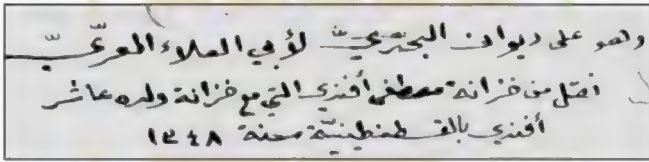 وهو على ديوان البحتريّ لأبي العلاء المعرّيّ
نقل من خزانة مصطفى أفندي التي مع خزانة ولده عاشر
أفندي بالقسطنطينيّة سنة ١٣٤٨